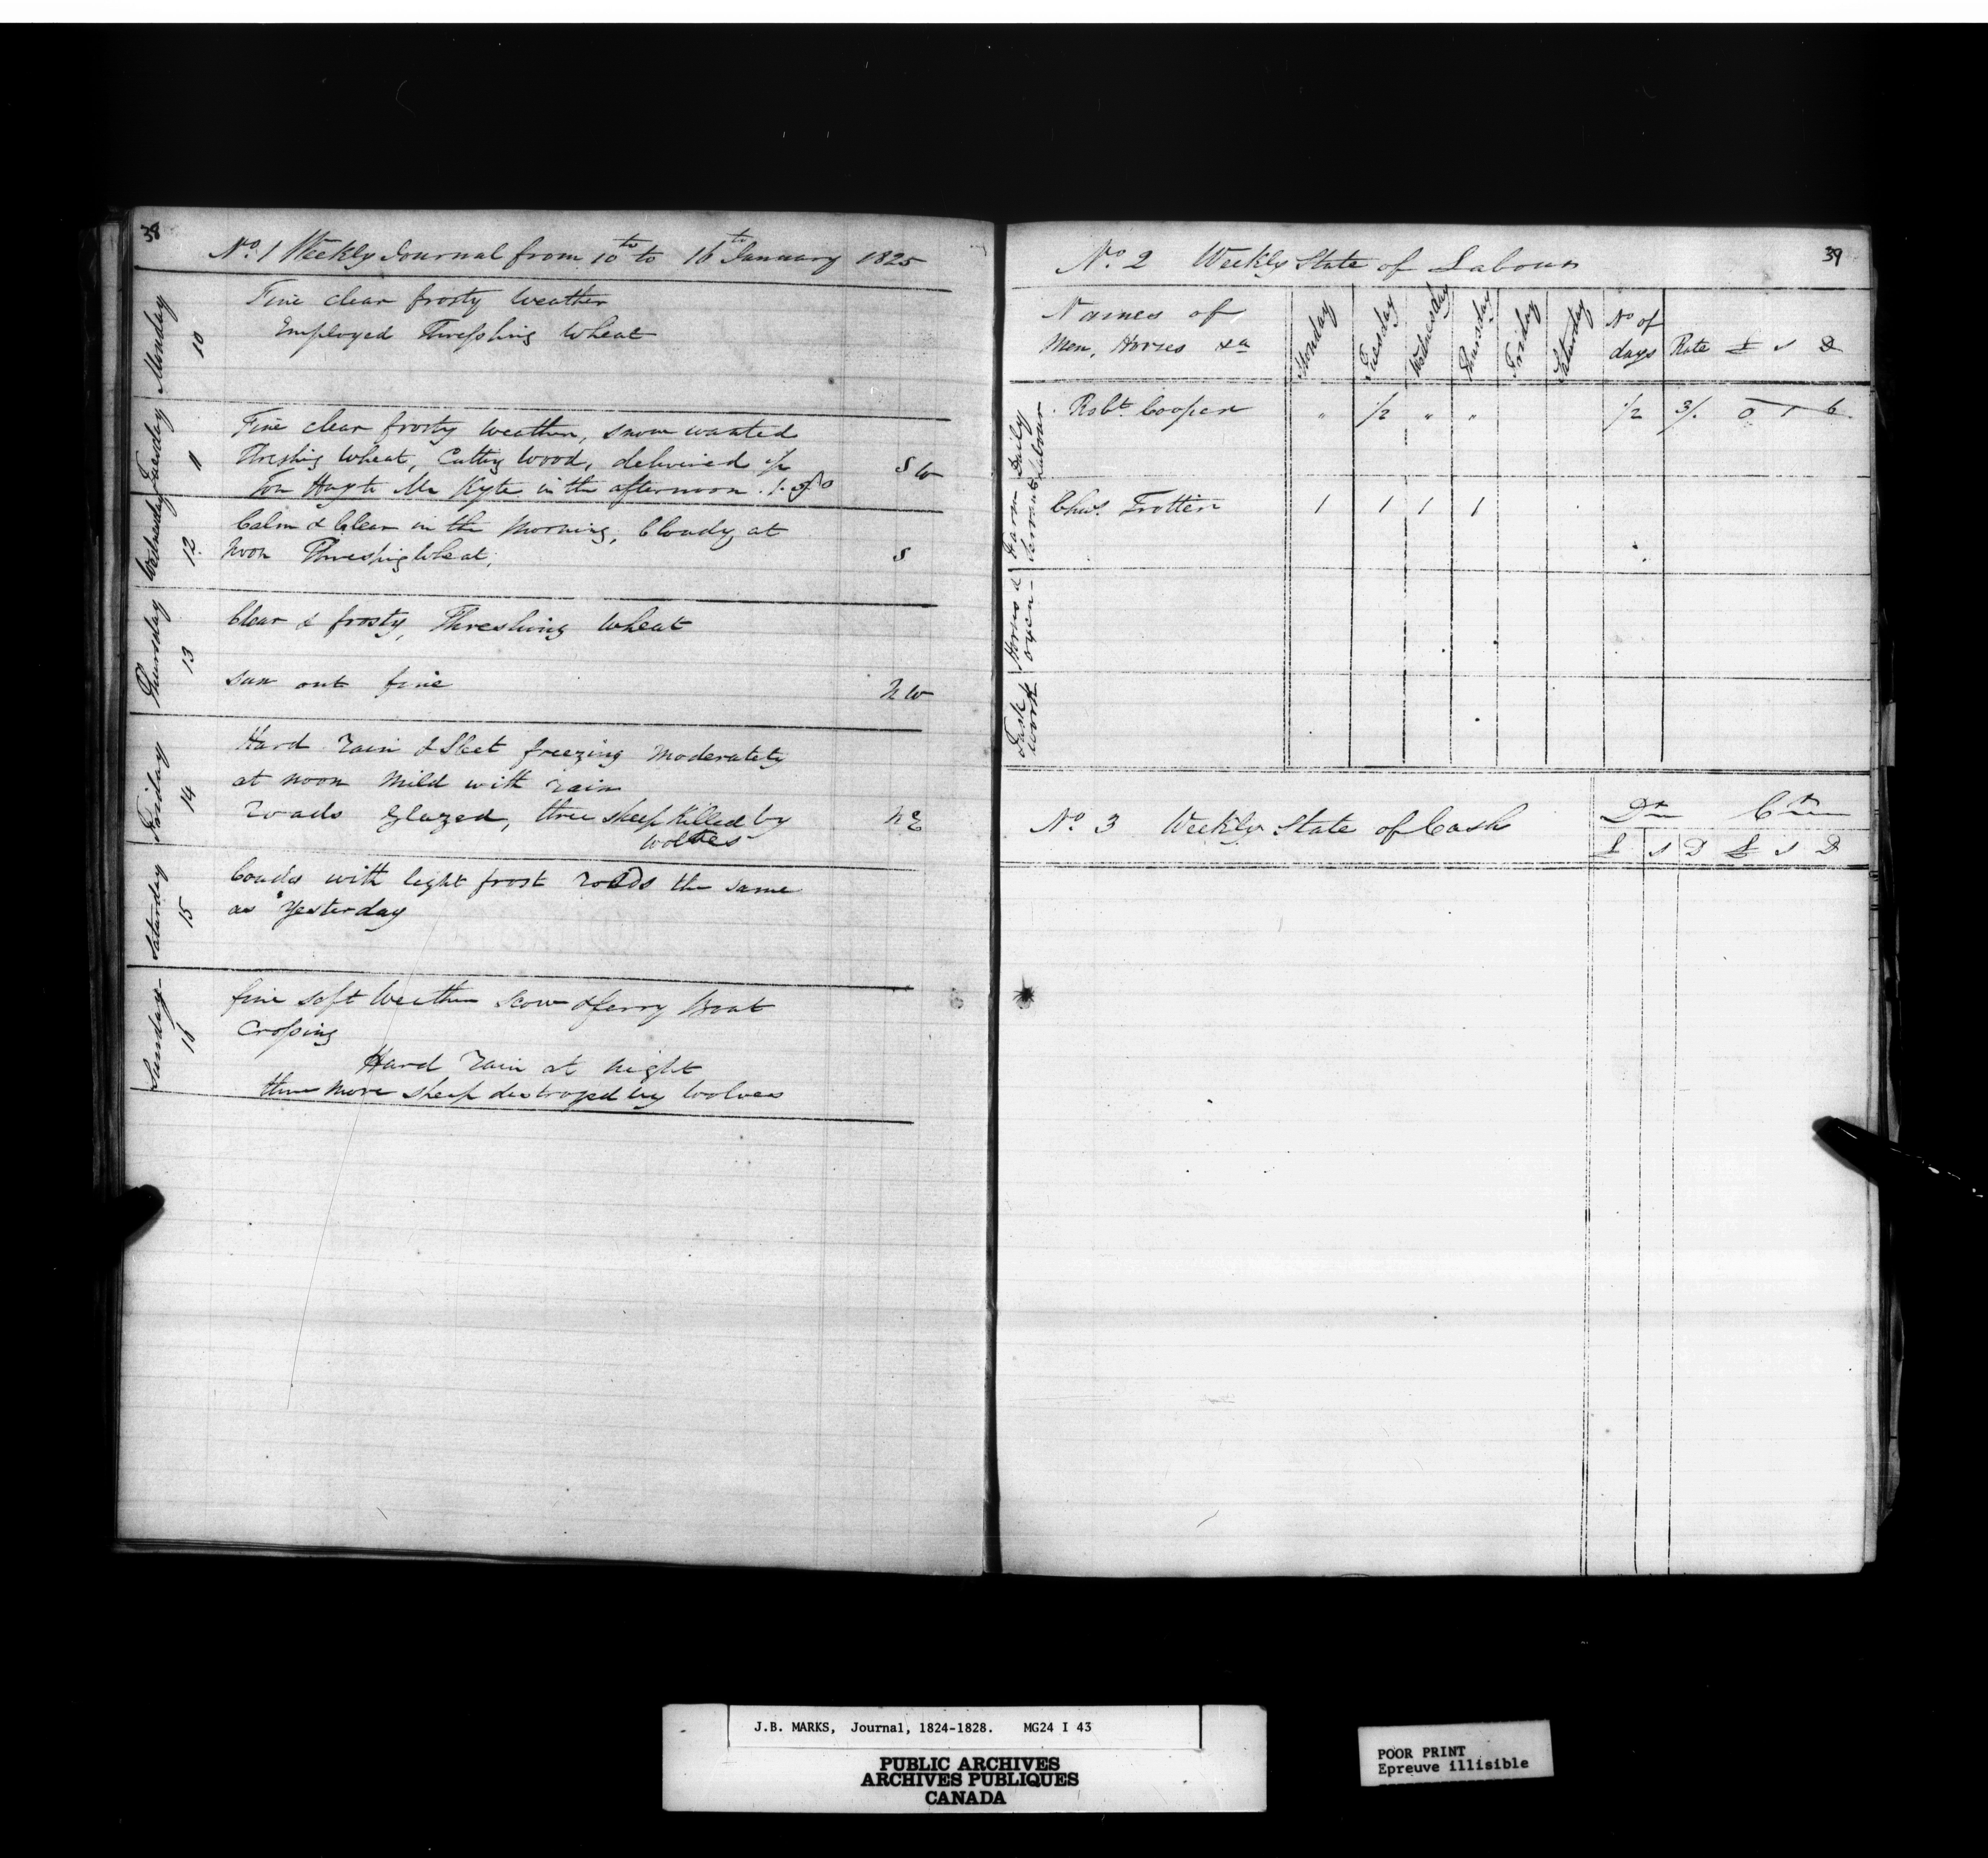 38
No. 1 Weekly Journal from 10th to 16th January 1825
Monday 10
Fine clear frosty Weather
Employed Threshing Wheat
Tuesday 11
Fine clear frosty Weather, snow wanted
Threshing Wheat, Cutting Wood, delivered 1/2
Ton Hay to Mr Kyte in the afternoon.
S W
Wednesday 12
Calm & Clear in the Morning, Cloudy at
Noon Threshing Wheat,
S
Thursday 13
Clear & frosty, Threshing Wheat
Sun out fine
N W
Friday 14
Hard rain & Sleet freezing Moderately
at noon Mild with rain
roads Glazed, three sheep killed by
wolves
N E
Saturday 15
Couds with light frost roads the same
as Yesterday
Sunday 16
fine soft Weather Scow & ferry Boat
Crossing
Hard rain at Night
three more sheep destroyed by Wolves
39
No. 2 Weekly State of Labour
Names of
Men, Horses &a
Monday Tuesday Wednesday Thursday Friday Saturday No of days Rate £ s D
Daily Labour
Robt. Cooper " 1/2 " " 1/2 3/. 0 1 6
Farm Servants
Chas. Trotter 1 1 1 1
Horses & oxen
Task Work
No. 3 Weekly State of Cash
Dr Cr
£ s D £ s D
J.B. MARKS, Journal, 1824-1828. MG24 I 43
PUBLIC ARCHIVES
ARCHIVES PUBLIQUES
CANADA
POOR PRINT
Epreuve illisible